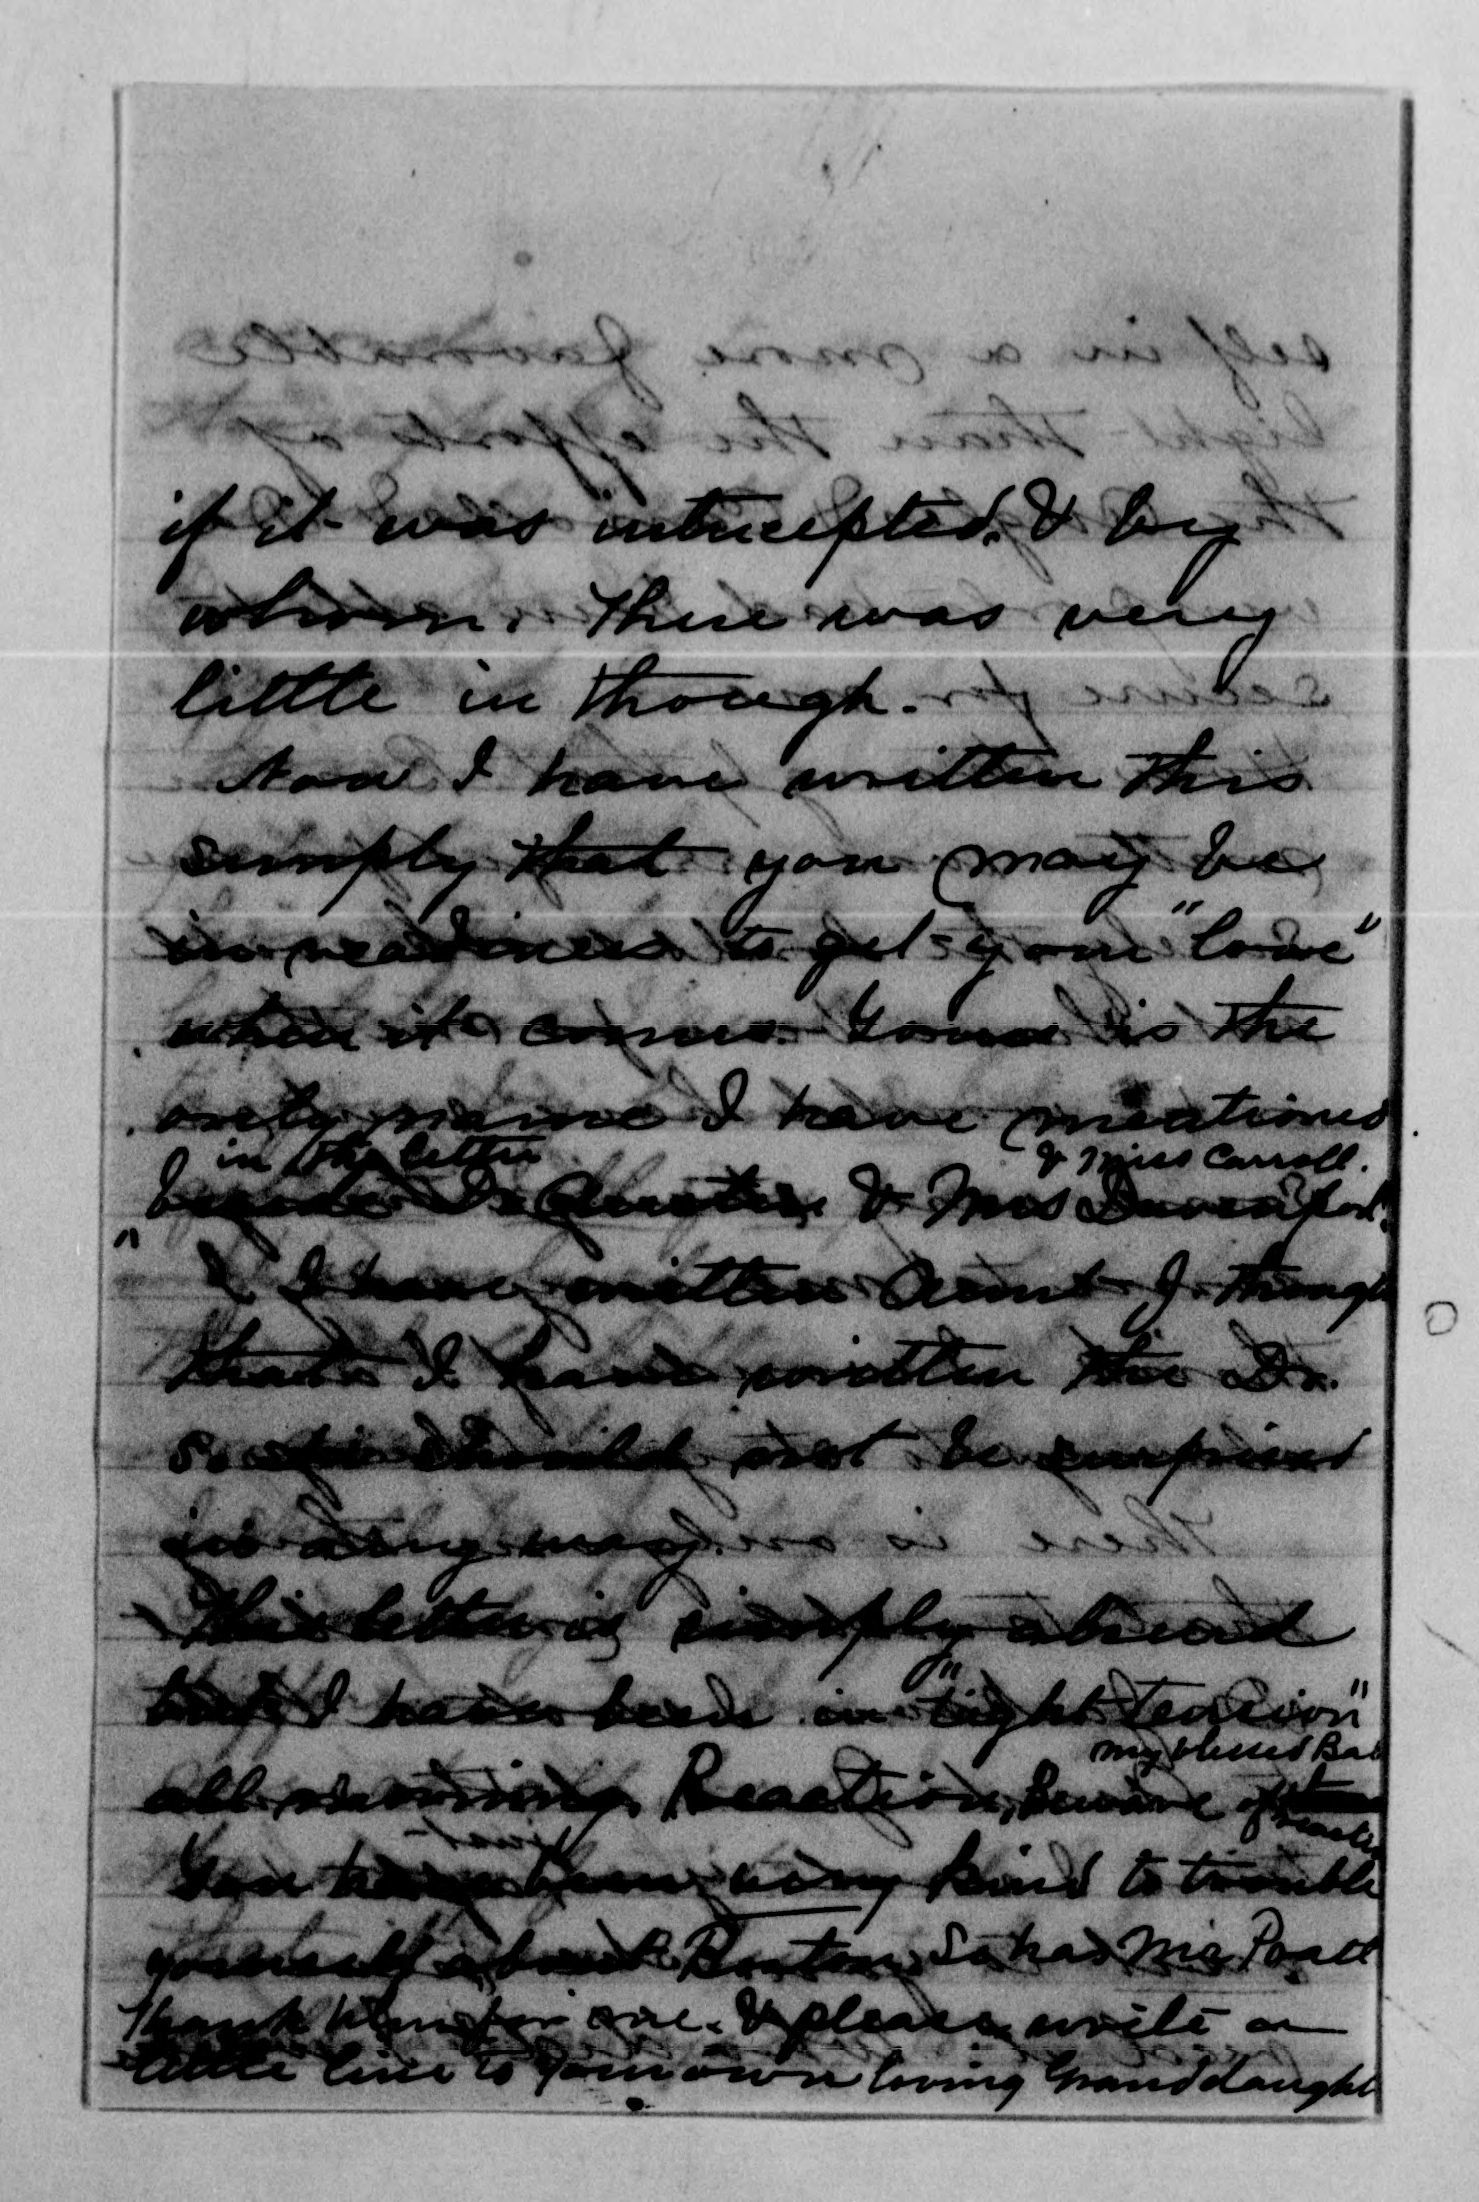 if it was intercepted, & by
whom. There was very
little in though.
Now I have written this
simply that you may be
in readiness to get your "love"
when it comes. Yours is the
only name I have mentioned
in the letter & Miss Carroll.
beside Dr Austin & Mrs Davenport.
I have written Aunt J. though
that I have written the Dr.
So she should not be surprised
in any way.
This letter is simply absurd
but I have been in "tight tension"
my blessed
all morning. Reaction, Beware of
You have been very kind to trouble
yourself about Boston. So has Mr
Thank him for me. & please write a
little line to your own loving Granddaughter